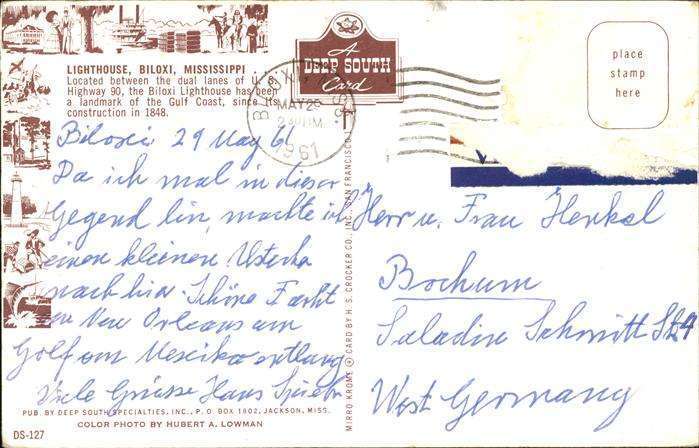 LIGHTHOUSE, BILOXI, MISSISSIPPI
Located between the dual lanes of U. S.
Highway 90, the Biloxi Lighthouse has been
a landmark of the Gulf Coast, since its
construction in 1848.
A
DEEP SOUTH
Card
place
stamp
here
BILOXI
MAY 29
PM
1961
Biloxi 29 May 61
Da ich mal in dieser
Gegend bin, machte ich
einen kleinen
nach hier Schöne Fahrt
New Orleans am
Golf von Mexiko entlang
Viele Grüsse Hans
Herr u. Frau Henkel
Bochum
Saladin Schmitt Str 4
West Germany
MIRRO-KROME CARD BY H. S. CROCKER CO., INC., SAN FRANCISCO
PUB. BY DEEP SOUTH SPECIALTIES, INC., P. O. BOX 1802, JACKSON, MISS.
COLOR PHOTO BY HUBERT A. LOWMAN
DS-127